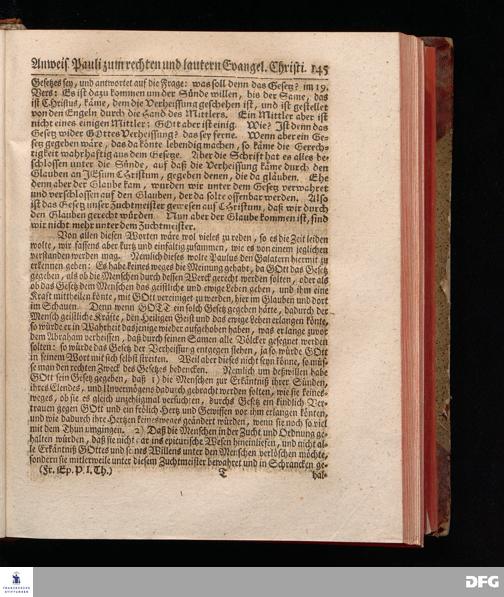 Anweiß Pauli zum rechten und lautern Evangel. Christi. 145
Gesetzes sey, und antwortet auf die Frage: was soll denn das Gesetz? im 19.
Vers: Es ist dazu kommen um der Sünde willen, bis der Same, das
ist Christus, käme, dem die Verheissung geschehen ist, und ist gestellet
von den Engeln durch die Hand des Mittlers. Ein Mittler aber ist
nicht eines einigen Mittler: GOtt aber ist einig. Wie? Ist denn das
Gesetz wider GOttes Verheissung? das sey ferne. Wenn aber ein Ge-
setz gegeben wäre, das da könte lebendig machen, so käme die Gerech-
tigkeit wahrhaftig aus dem Gesetze. Aber die Schrift hat es alles be-
schlossen unter die Sünde, auf daß die Verheissung käme durch den
Glauben an JEsum CHristum, gegeben denen, die da gläuben. Ehe
denn aber der Glaube kam, wurden wir unter dem Gesetz verwahret
und verschlossen auf den Glauben, der da solte offenbar werden. Also
ist das Gesetz unser Zuchtmeister gewesen auf CHristum, daß wir durch
den Glauben gerecht würden. Nun aber der Glaube kommen ist, sind
wir nicht mehr unter dem Zuchtmeister.
Von allen diesen Worten wäre wol vieles zu reden, so es die Zeit leiden
wolte, wir fassens aber kurtz und einfältig zusammen, wie es von einem jeglichen
verstanden werden mag. Nemlich dieses wolte Paulus den Galatern hiermit zu
erkennen geben: Es habe keines weges die Meinung gehabt, da GOtt das Gesetz
gegeben, als ob die Menschen durch dessen Werck gerecht werden solten, oder als
ob das Gesetz dem Menschen das geistliche und ewige Leben geben, und ihm eine
Kraft mittheilen könte, mit GOtt vereiniget zu werden, hier im Glauben und dort
im Schauen. Denn wenn GOTT ein solch Gesetz gegeben hätte, dadurch der
Mensch geistliche Kräfte, den Heiligen Geist und das ewige Leben erlangen könte,
so würde er in Wahrheit dasjenige wieder aufgehoben haben, was er lange zuvor
dem Abraham verheissen, daß durch seinen Samen alle Völcker gesegnet werden
solten: so würde das Gesetz der Verheissung entgegen stehen, ja so würde GOtt
in seinem Wort mit sich selbst streiten. Weil aber dieses nicht seyn könne, so müs-
se man den rechten Zweck des Gesetzes bedencken. Nemlich um deßwillen habe
GOtt sein Gesetz gegeben, daß 1) die Menschen zur Erkäntniß ihrer Sünden,
ihres Elendes, und Unvermögens dadurch gebracht werden solten, wie sie keines-
weges, ob sie es gleich unzehligmal versuchten, durchs Gesetz ein kindlich Ver-
trauen gegen GOtt und ein frölich Hertz und Gewissen vor ihm erlangen könten,
und wie dadurch ihre Hertzen keinesweges geändert würden, wenn sie noch so viel
mit dem Thun umgingen. 2) Daß die Menschen in der Zucht und Ordnung ge-
halten würden, daß sie nicht gar ins epicurische Wesen hineinliefen, und nicht al-
le Erkäntniß GOttes und seines Willens unter den Menschen verlöschen möchte,
sondern sie mitlerweile unter diesem Zuchtmeister bewahret und in Schrancken ge-
(Fr. Ep. P. I. Th.) T hal-
FRANCKESCHE
STIFTUNGEN
DFG